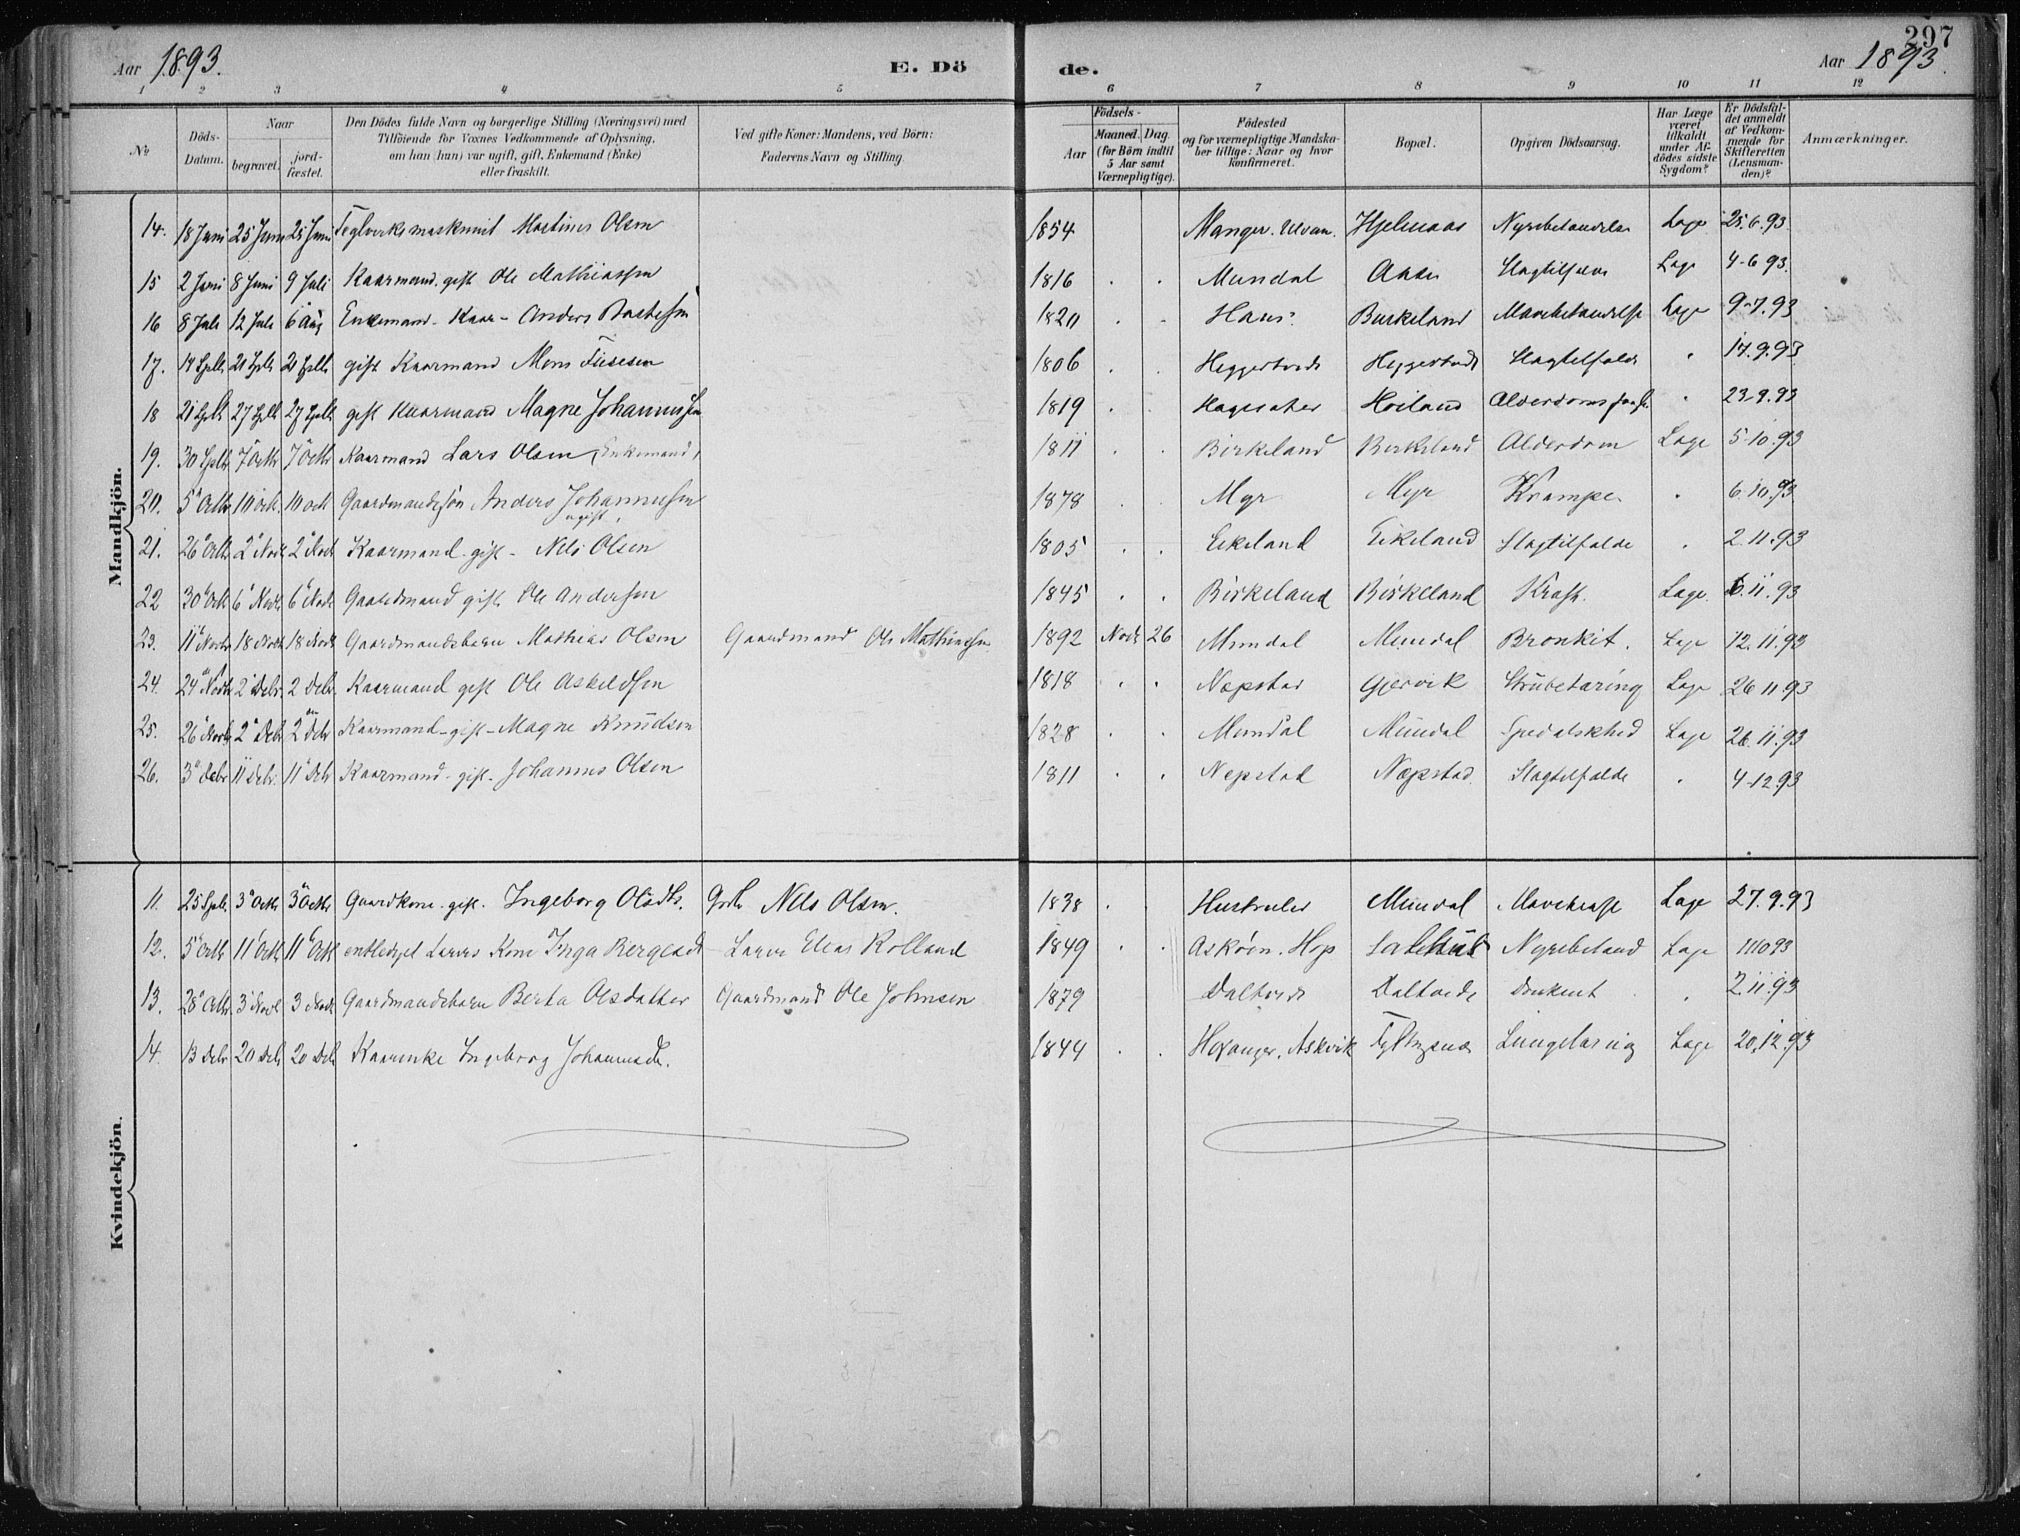 297
Aar 1893. E. Dö de. Aar 1893.
1 2 3 4 5 6 7 8 9 10 11 12
No
Döds-Datum.
Naar
begravet.
jordfæstet.
Den Dödes fulde Navn og borgerlige Stilling (Næringsvei) med
Tilföiende for Voxnes Vedkommende af Oplysning,
om han (hun) var ugift, gift, Enkemand (Enke)
eller fraskilt.
Ved gifte Koner: Mandens, ved Börn:
Faderens Navn og Stilling.
Födsels-
Aar
Maaned. Dag.
(for Börn indtil
5 Aar samt
Værnepligtige).
Födested
og for værnepligtige Mandskaber tillige: Naar og hvor
Konfirmeret.
Bopæl.
Opgiven Dödsaarsag.
Har Læge
været
tilkaldt
under Afdödes sidste
Sygdom?
Er Dödsfaldet anmeldt
af Vedkommende for
Skifteretten
(Lensmanden)?
Anmærkninger.
Mandkjön.
14. 18 Juni 25 Juni 25 Juni Teglverksmaskinist Martinus Olsen 1854 Manger. Hjelmaas Nyrebetændelse Læge 25.6.93
15 2 Juni 8 Juni 9 Juli Kaarmand. gift Ole Mathiassen 1816 Mundal Aase Slagtilfælde Læge 4-6 93.
16 8 Juli 12 Juli 6 Aug Enkemand - Kaar - Anders 1820 Haus Burkeland Mavebetændelse Læge 9-7.93
17. 14 Septb 21 Septb 21 Septb gift Kaarmand Mons 1806 Heggertveit Heggertveit Slagtilfælde " 17.9.93
18 21 Septb 27 Septb 27 Septb gift Kaarmand Magne Johannessen 1819 Hagesæter Höiland " 23.9.93
19. 30 Septb 7 Octb 7 Octb Kaarmand Lars Olsen (Enkemand) 1811 Birkeland Birkeland Alderdom Læge 5-10.93
20. 5 Octb 10 Oct. 10 Oct Gaardmandssön Anders Johannessen 1878 Myr Myr Krampe " 6.10.93
ugift.
21. 26 Octb 2 Novb 2 Novb Kaarmand - gift - Nils Olsen 1805 Eikeland Eikeland Slagtilfælde " 2.11.93
22 30 Octb 6 Novb 6 Novb Gaardmand gift Ole Andersen 1845 Birkeland Birkeland Kræft. Læge. 6.11.93
23. 11 Novbr 18 Novb 18 Novb Gaardmandsbarn Mathias Olsen Gaardmand Ole Mathiassen 1892 Novb 26 Mundal Mundal Bronkit. Læge 12.11.93
24. 24 Novb 2 Debr 2 Debr Kaarmand gift Ole Askeldsen 1818 Nepstad Gjervik Strubetæring Læge 26 11 93
25. 26 Novbr 2 Debr 2 Debr Kaarmand - gift - Magne Knudsen 1828 Mundal Mundal Spedalskhed Læge 26.11.93
26. 3 Debr 11 Debr. 11 Debr Kaarmand - gift - Johannes Olsen 1811 Nepstad Nepstad Slagtilfælde " 4-12 93
Kvindekjön.
11. 25 Septb. 3 Octb 3 Octbr Gaardkone - gift. Ingeborg Olsdtr. Nils Olsen. 1838 Mundal Mavekræft Læge 27.9.93
12. 5 Octbr 11 Octb 11 Octb Kone Inga Elias Rolland 1849 Asköen. Hop Nyrebetænd Læge 11 10 93
13. 28 Octbr. 3 Novb 3 Novb Gaardmandsbarn Berta Olsdatter Gaardmand Ole Johnsen 1879 Daltveit Daltveit " 2.11.93
14. 13 Debr 20 Debr 20 Debr Kaarenke Ingeborg Johannesdtr. 1844 Hosanger. Askvik Lungetæring Læge 20.12.93